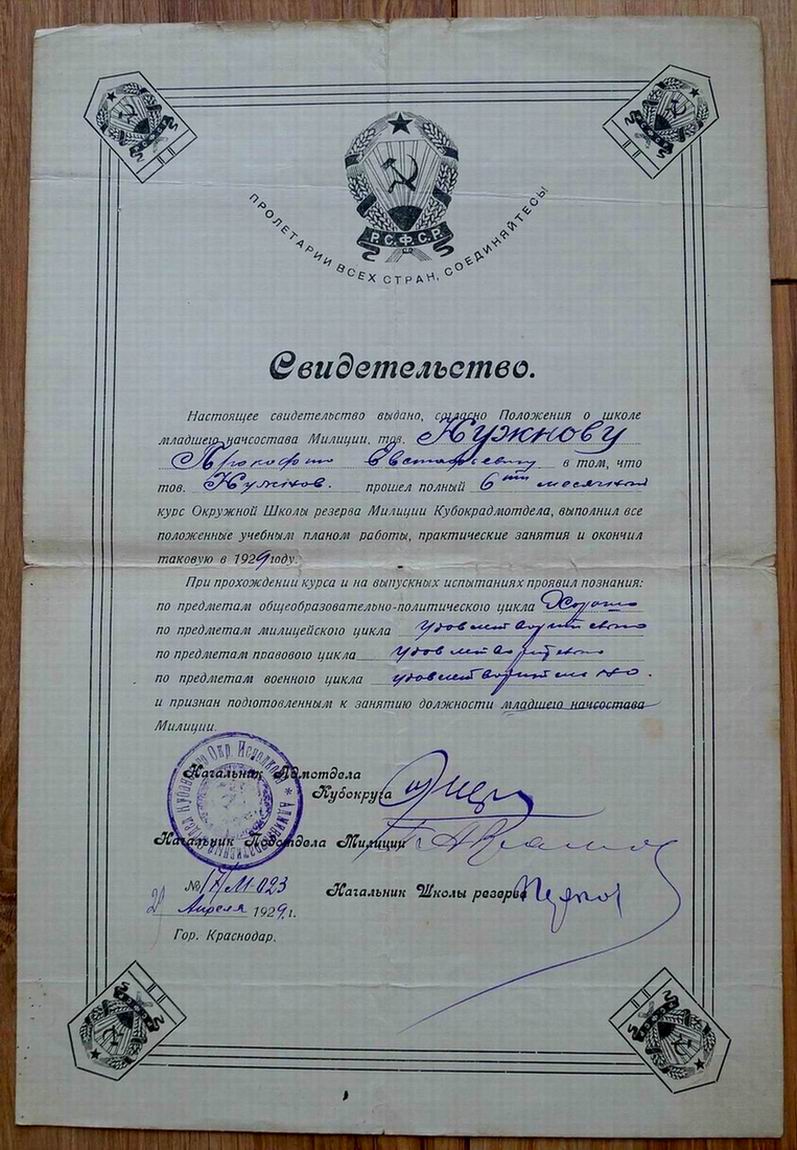 Р.С.Ф.С.Р.
ПРОЛЕТАРИИ ВСЕХ СТРАН, СОЕДИНЯЙТЕСЬ!
Свидетельство.
Настоящее свидетельство выдано, согласно Положения о школе
младшего начсостава Милиции, тов. Нужнову
Прокофию Евстафьевичу в том, что
тов. Нужнов. прошел полный 6ти месячный
курс Окружной Школы резерва Милиции Кубокрадмотдела, выполнил все
положенные учебным планом работы, практические занятия и окончил
таковую в 1929 году.
При прохождении курса и на выпускных испытаниях проявил познания:
по предметам общеобразовательно-политического цикла Хорошо
по предметам милицейского цикла удовлетворительно
по предметам правового цикла удовлетворительно
по предметам военного цикла удовлетворительно.
и признан подготовленным к занятию должности младшего начсостава
Милиции.
Начальник Адмотдела
Кубокруга
Начальник Подотдела Милиции
№ 023
Начальник Школы резерва
Апреля 1929 г.
Гор. Краснодар.